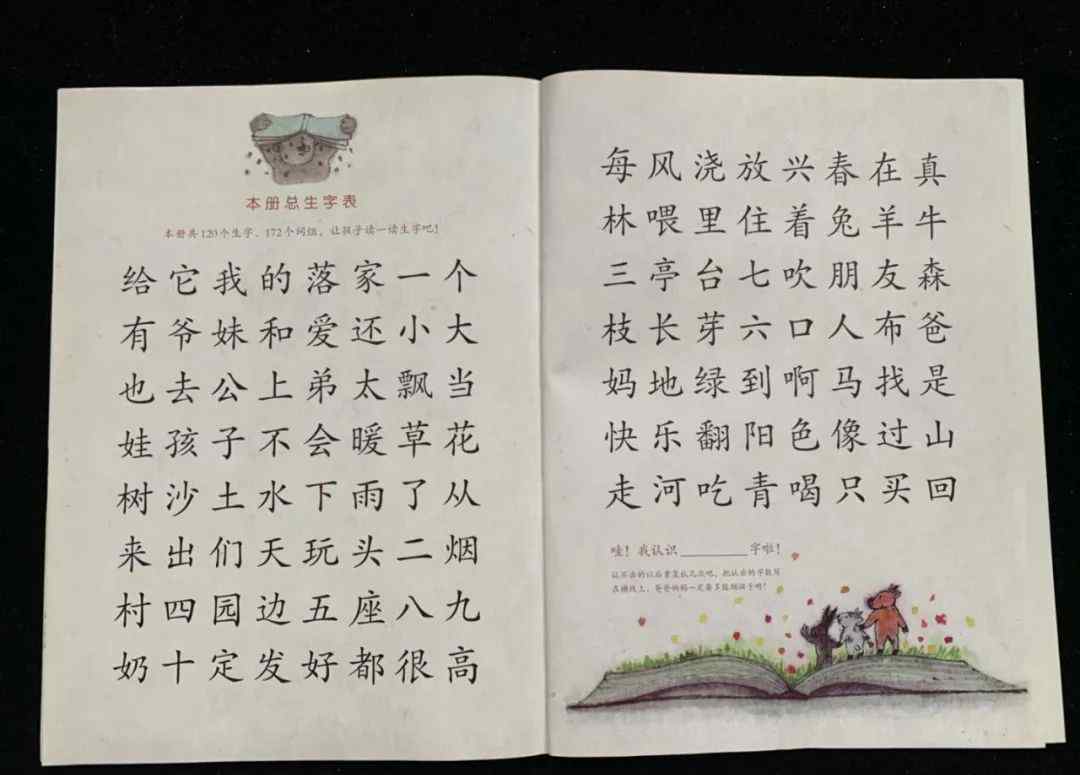 本册总生字表
本册共120个生字、172个词组，让孩子读一读生字吧！
给它我的落家一个
有爷妹和爱还小大
也去公上弟太飘当
娃孩子不会暖草花
树沙土水下雨了从
来出们天玩头二烟
村四园边五座八九
奶十定发好都很高
每风浇放兴春在真
林喂里住着兔羊牛
三亭台七吹朋友森
枝长芽六口人布爸
妈地绿到啊马找是
快乐翻阳色像过山
走河吃青喝只买回
哇！我认识________字啦！
在横线上，爸爸妈妈一定要多鼓励孩子哟！